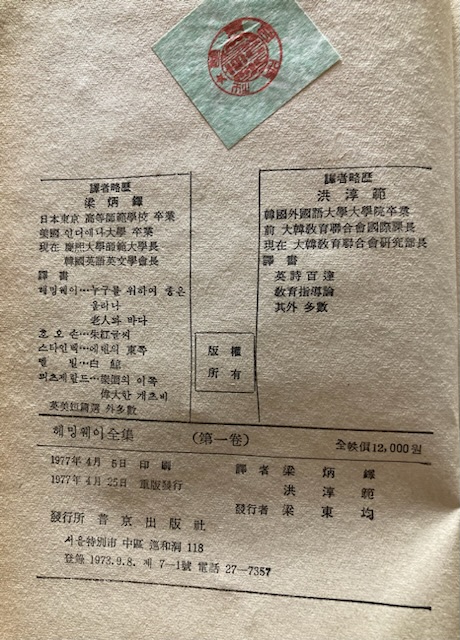 譯者略歷
梁炳鐸
日本東京 高等師範學校 卒業
美國 인디애나大學 卒業
現在 慶熙大學師範大學長
韓國英語英文學會長
譯書
헤밍웨이…누구를 위하여 종은
울리나
老人과 바다
호오손…朱紅글씨
스타인벡…에덴의 東쪽
멜빌…白鯨
피츠제랄드…樂園의 이쪽
偉大한 개츠비
英美短篇選 外多數
譯者略歷
洪淳範
韓國外國語大學大學院卒業
前 大韓敎育聯合會國際課長
現在 大韓敎育聯合會硏究部長
譯書
英詩百選
敎育指導論
其外 多數
版權
所有
헤밍웨이全集 (第一卷) 全帙價12,000원
1977年 4月 5日 印刷
1977年 4月 25日 重版發行
譯者 梁炳鐸
洪淳範
發行者 梁東均
發行所 普京出版社
서울特別市 中區 蓬和洞 118
登錄 1973.9.8. 제 7—1號 電話 27—7357